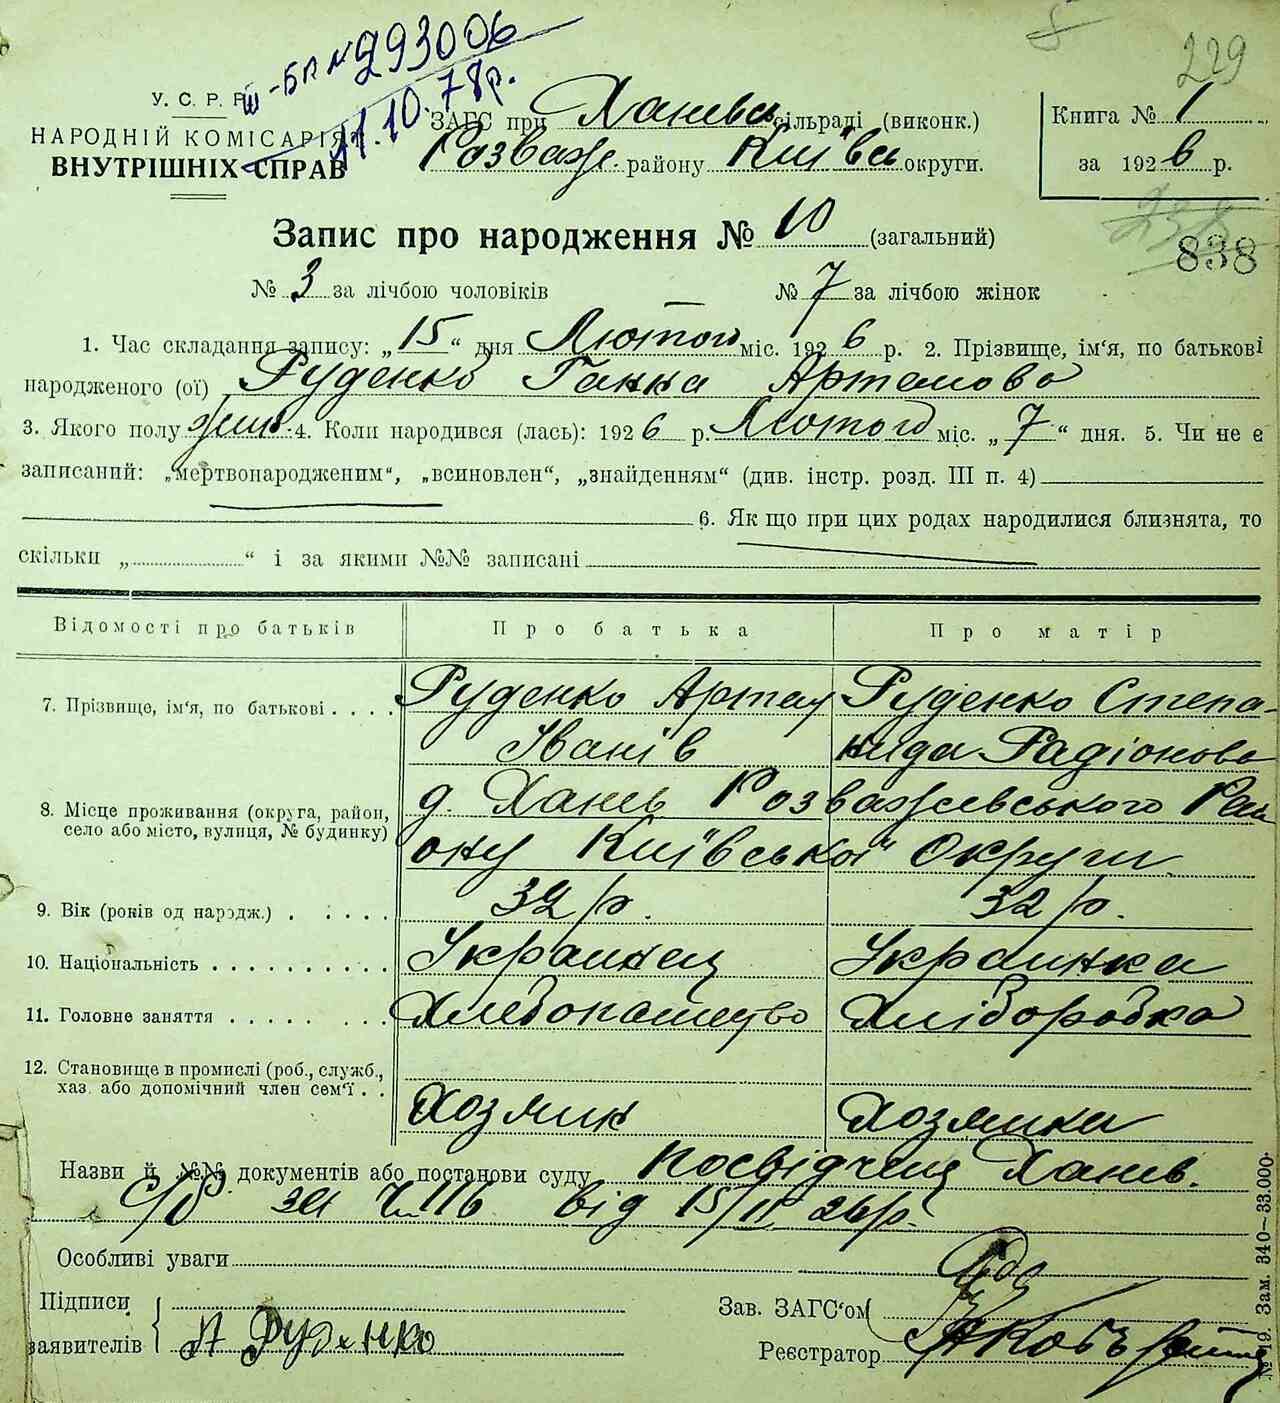 229
ІІІ-БП № 293006
11.10.78р.
У. С. Р. Р.
НАРОДНІЙ КОМІСАРІЯТ
ВНУТРІШНІХ СПРАВ
ЗАГС при Ханевск сільраді (виконк.)
Розваж. району Київськ округи.
Книга № 1
за 1926 р.
Запис про народження № 10 (загальний)
238
838
№ 3 за лічбою чоловіків № 7 за лічбою жінок
1. Час складання запису: „15“ дня Лютого міс. 1926 р. 2. Прізвище, ім‘я, по батькові
народженого (ої) Руденко Ганна Артемова
3. Якого полу жін. 4. Коли народився (лась): 1926 р. Лютого міс. „7“ дня. 5. Чи не є
записаний: „мертвонародженим“, „всиновлен“, „знайденням“ (див. інстр. розд. III п. 4)
6. Як що при цих родах народилися близнята, то
скільки „ “ і за якими №№ записані
Відомості про батьків Про батька Про матір
7. Прізвище, ім‘я, по батькові . . . . Руденко Артем Руденко Степа-
Іванів нида Радіонова
8. Місце проживання (округа, район, д. Ханів Розважевського Рай
село або місто, вулиця, № будинку) ону Київської Округи
9. Вік (років од народж.) . . . . . 32 р. 32 р.
10. Національність . . . . . . . . . . Українец Украинка
11. Головне заняття . . . . . . . . Хлебопашество Хліборобка
12. Становище в промислі (роб., служб.,
хаз. або допомічний член сем‘ї . . Хозяин Хозяика
Назви й №№ документів або постанови суду посвідчен Ханів.
с/р за ч. 116 від 15/II 26 р.
Особливі уваги
Підписи
заявителів А Руденко
Зав. ЗАГС‘ом
Реєстратор
№ 19. Зам. 340—33.000.